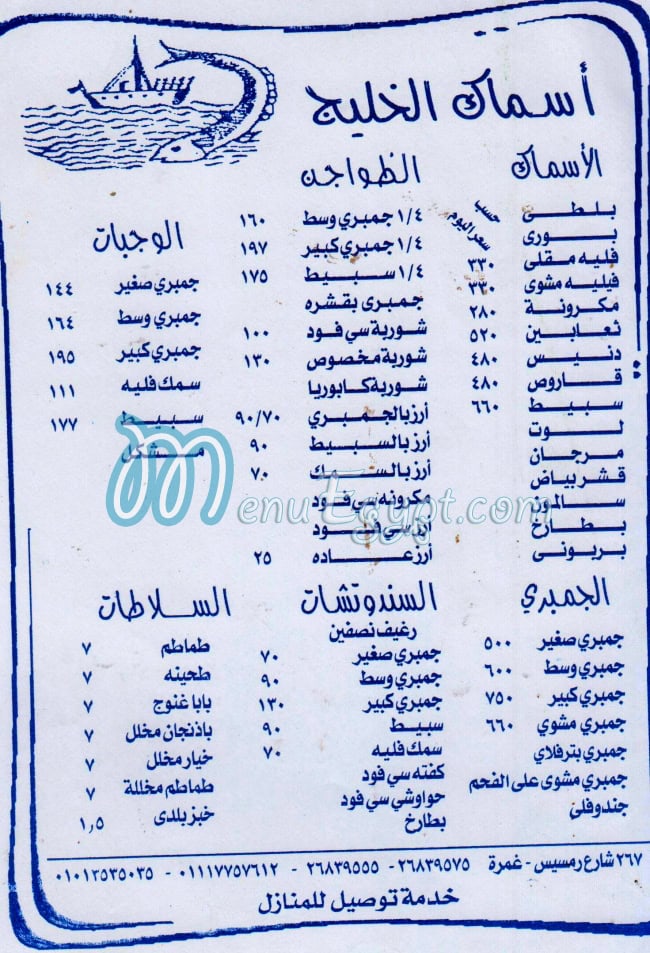 أسماك الخليج
الأسماك
بلطى حسب سعر اليوم
بورى
فليه مقلى ٣٣٠
فيليه مشوى ٣٣٠
مكرونة ٢٨٠
ثعابين ٥٢٠
دنيس ٤٨٠
قاروص ٤٨٠
سبيط ٦٦٠
لوت
مرجان
قشر بياض
سالمون
بطارخ
بربونى
الظواجن
١/٤ جمبري وسط ١٦٠
١/٤ جمبري كبير ١٩٧
١/٤ سبيط ١٧٥
جمبرى بقشره
شوربة سي فود ١٠٠
شوربة مخصوص ١٣٠
شوربة كابوريا
أرز بالجمبري ٩٠/٧٠
أرز بالسبيط ٩٠
أرز بالسمك ٧٠
مكرونه سي فود
أرز سي فود
أرز عاده ٢٥
الوجبات
جمبري صغير ١٤٤
جمبري وسط ١٦٤
جمبري كبير ١٩٥
سمك فليه ١١١
سبيط ١٧٧
مشكل
MenuEgypt.com
الجمبري
جمبري صغير ٥٠٠
جمبري وسط ٦٠٠
جمبري كبير ٧٥٠
جمبري مشوي ٦٦٠
جمبري بترفلاي
جمبري مشوى على الفحم
جندوفلى
السندوتشات
رغيف نصفين
جمبري صغير ٧٠
جمبري وسط ٩٠
جمبري كبير ١٣٠
سبيط ٩٠
سمك فليه ٧٠
كفته سي فود
حواوشي سي فود
بطارخ
السلاطات
طماطم ٧
طحينه ٧
بابا غنوج ٧
باذنجان مخلل ٧
خيار مخلل ٧
طماطم مخللة ٧
خبز بلدى ١,٥
٢٦٧ شارع رمسيس - غمرة ٢٦٨٣٩٥٧٥ - ٢٦٨٣٩٥٥٥ - ٠١١١٧٧٥٧٦١٢ - ٠١٠١٣٥٣٥٠٣٥
خدمة توصيل للمنازل